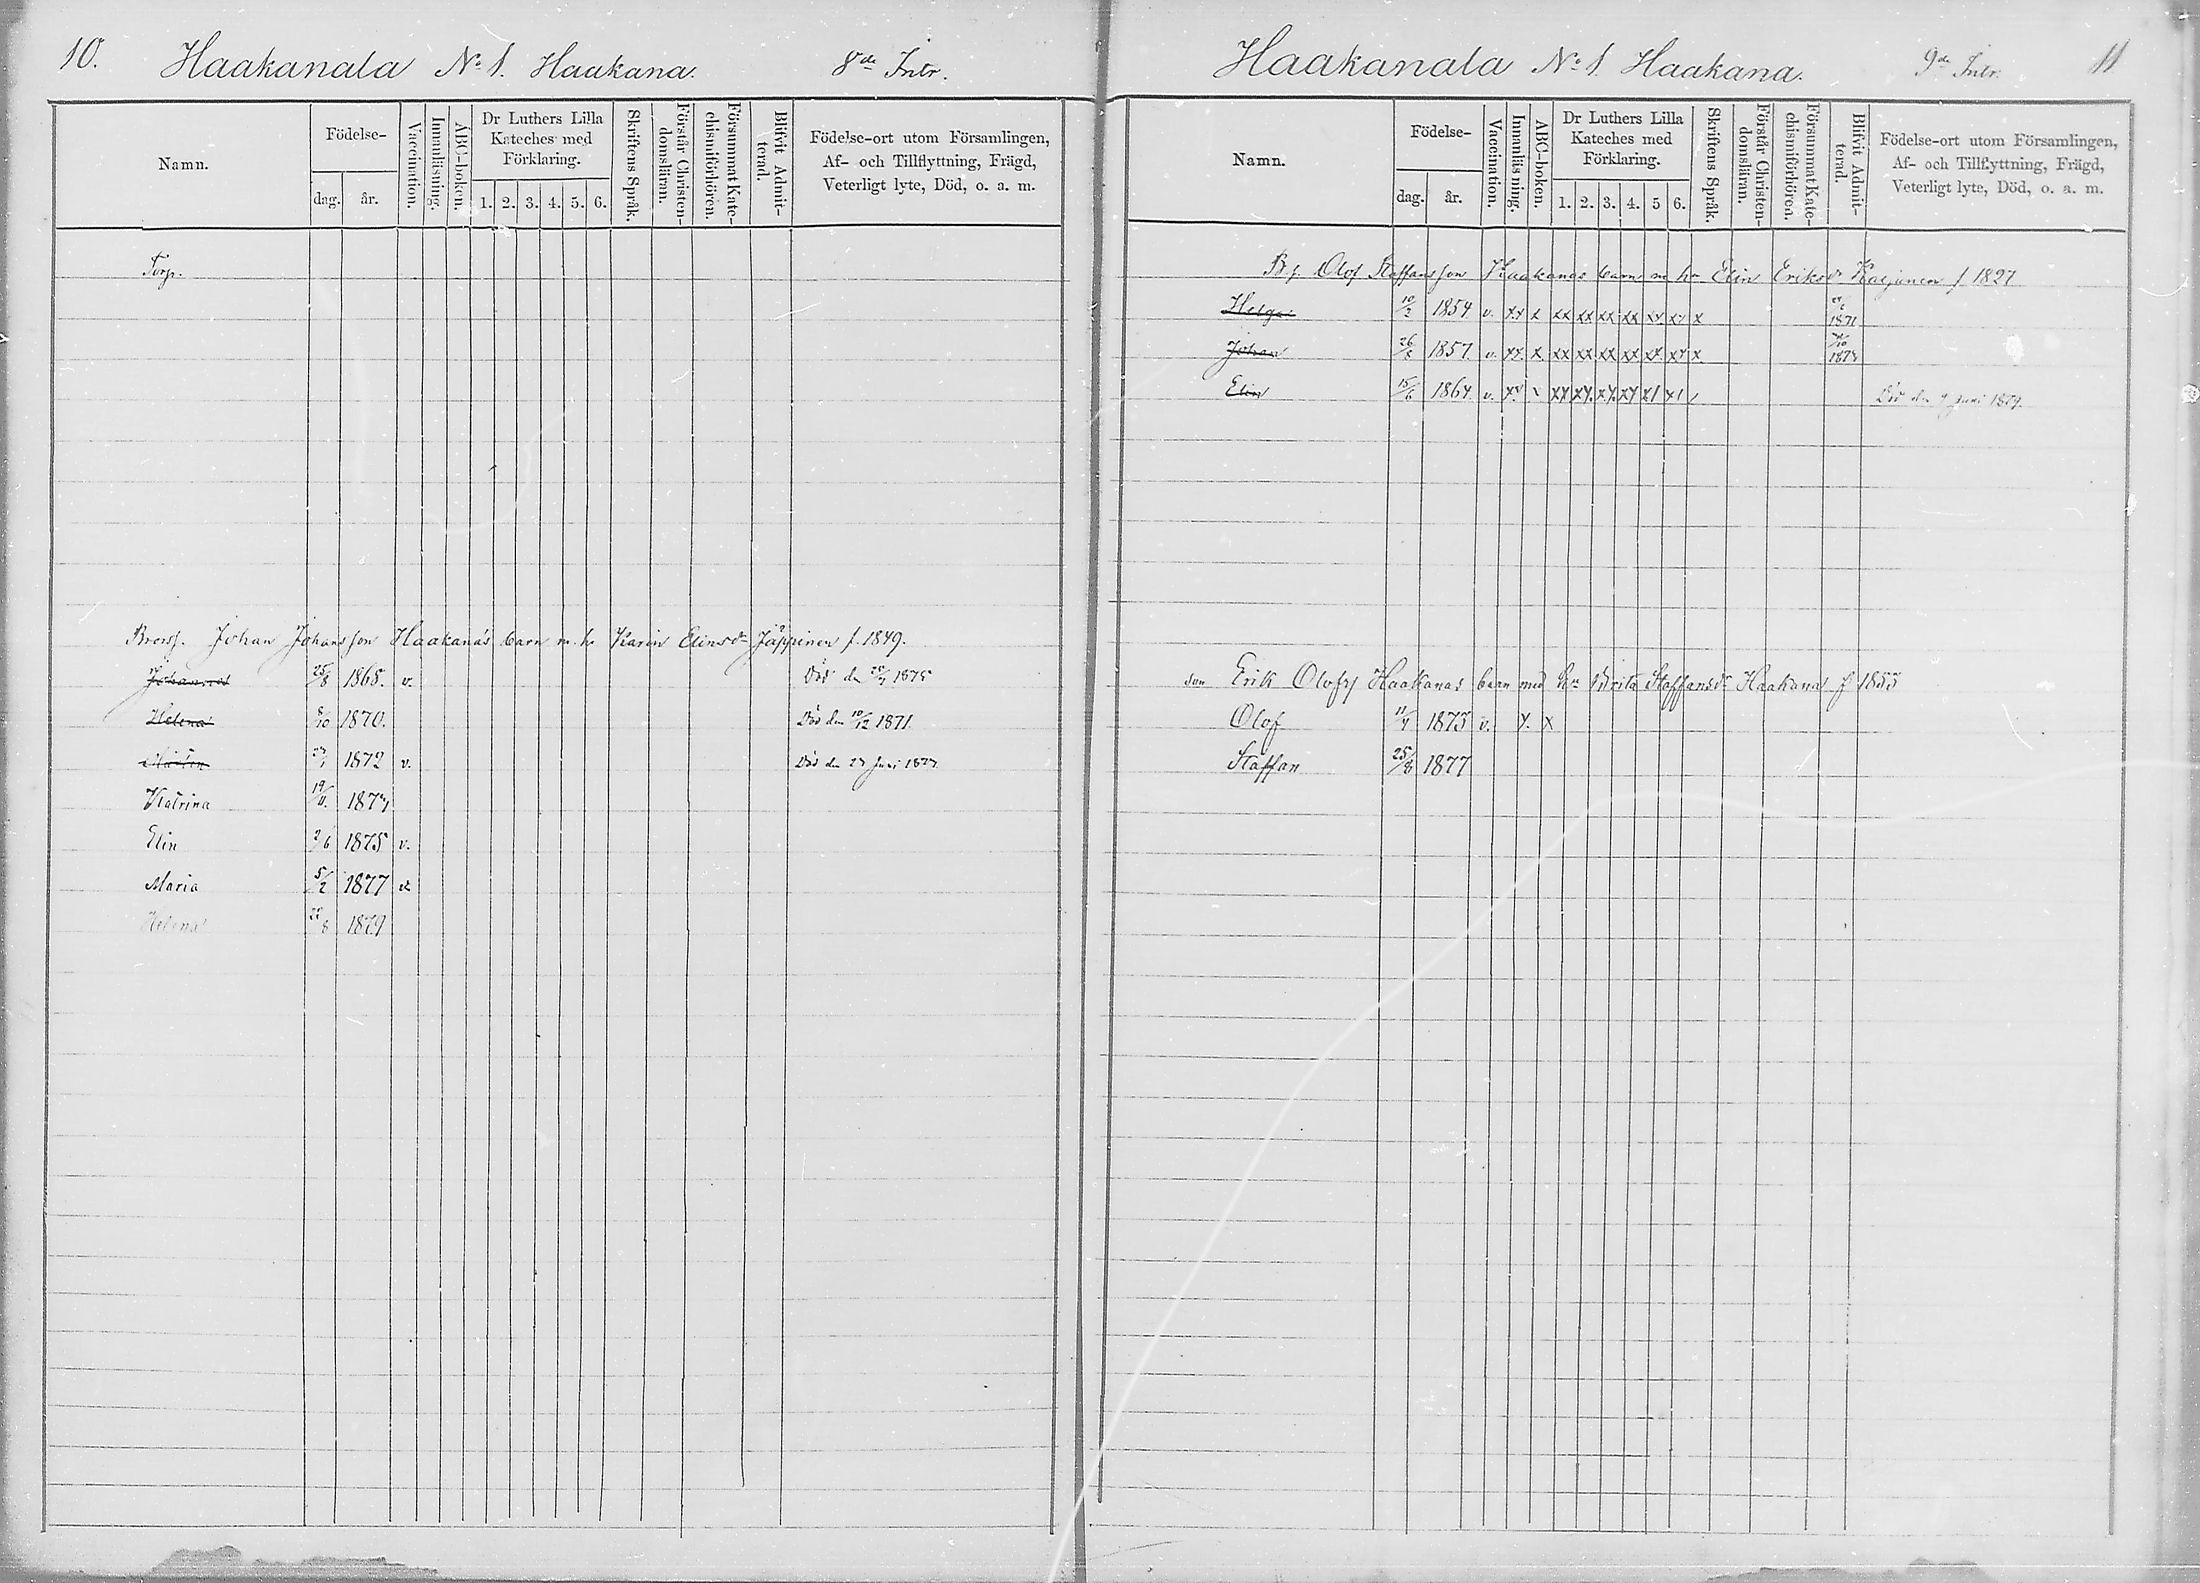 10. Haakanala No 1. Haakana. 8de Intr.
Namn.
Födelse-
dag. år.
Vaccination.
Innanläsning.
ABC-boken.
Dr Luthers Lilla Kateches med Förklaring.
1. 2. 3. 4. 5. 6.
Skriftens Språk.
Förstår Christen-domsläran.
Försummat Kate-chismiförhören.
Blifvit Admit-terad.
Födelse-ort utom Församlingen, Af- och Tillflyttning, Frägd, Veterligt lyte, Död, o. a. m.
Torp.
Johan Johansson Haakanas barn m. h. Karin Elinsdr Jäppinen f. 1849.
Johannes 25/8 1868. v. Död den 1875
Helena 8/10 1870. Död den 10/12 1871
1872 v. Död den 27 Juni
Katrina 19/11.
Elin 2/6 1875 v.
Maria 5/2 1877 v.
Helena 1879
Haakanala No 1. Haakana. 9de Intr. 11
Namn.
Födelse-
dag. år.
Vaccination.
Innanläsning.
ABC-boken.
Dr Luthers Lilla Kateches med Förklaring.
1. 2. 3. 4. 5 6.
Skriftens Språk.
Förstår Christen-domsläran.
Försummat Kate-chismiförhören.
Blifvit Admit-terad.
Födelse-ort utom Församlingen, Af- och Tillflyttning, Frägd, Veterligt lyte, Död, o. a. m.
Olof Staffansson Haakanas barn m h. Elin Eriksdr f 1827
Helga 10/2 1854 v. xx x xx xx xx xx xx xx x 1871
Johan 26/8 1857. v. xx. x xx xx xx xx xx xx x
Elin 15/6 1864. v. xx xx xx xx xx Död den 9 Juni 1879.
son Erik Olofss Haakanas barn med hu Brita Staffansdr Haakana f 1853
Olof 11/4 1875 v. x. x
Staffan 25/8 1877